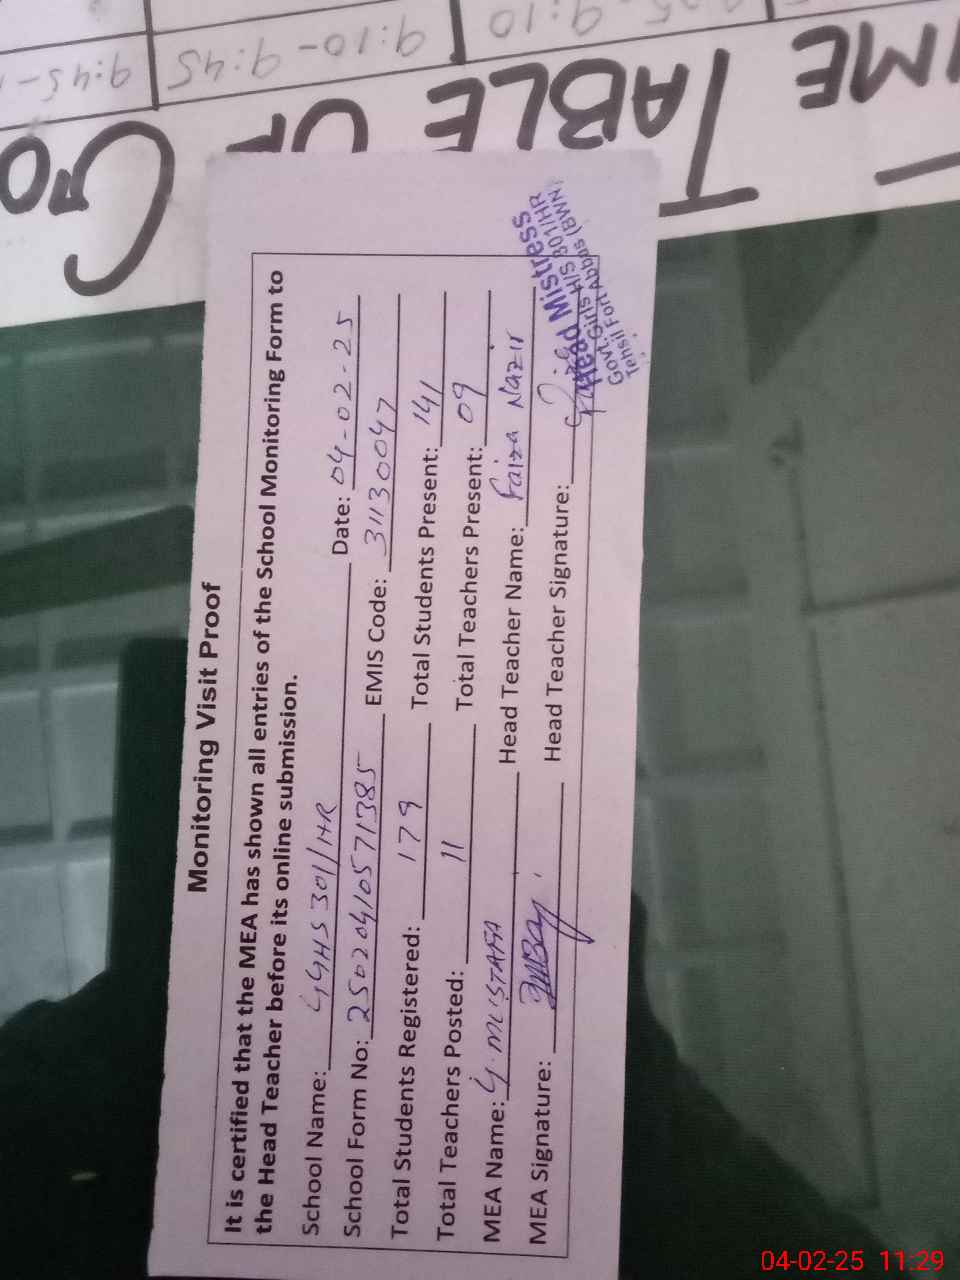 9:10
9:10-9:45
9:45-
TIME TABLE OF GO
Monitoring Visit Proof
It is certified that the MEA has shown all entries of the School Monitoring Form to
the Head Teacher before its online submission.
School Name: GGHS 301/HR Date: 04-02-25
School Form No: 25020410571385 EMIS Code: 31130047
Total Students Registered: 179 Total Students Present: 141
Total Teachers Posted: 11 Total Teachers Present: 09
MEA Name: G. MUSTAFA Head Teacher Name: Faiza Nazir
MEA Signature: Head Teacher Signature:
Head Mistress
Govt. Girls H/S 301/HR
Tehsil Fort Abbas (BWN)
04-02-25 11:29